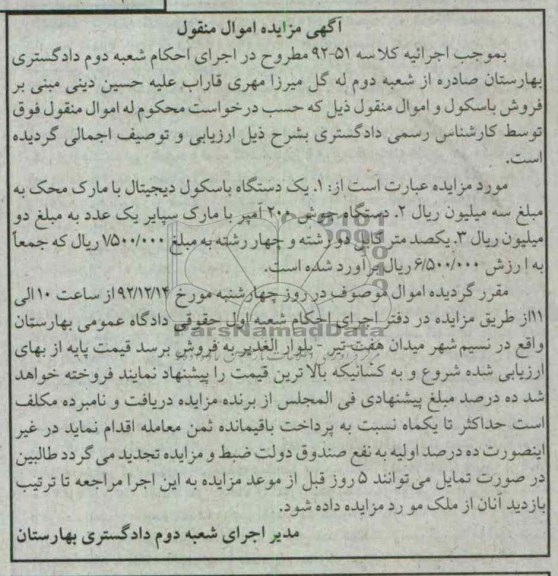 آگهی مزایده اموال منقول
بموجب اجرائیه کلاسه ۵۱-۹۲ مطروح در اجرای احکام شعبه دوم دادگستری
بهارستان صادره از شعبه دوم له گل میرزا مهری قاراب علیه حسین دینی مبنی بر
فروش باسکول و اموال منقول ذیل که حسب درخواست محکوم له اموال منقول فوق
توسط کارشناس رسمی دادگستری بشرح ذیل ارزیابی و توصیف اجمالی گردیده
است.
مورد مزایده عبارت است از: ۱. یک دستگاه باسکول دیجیتال با مارک محک به
مبلغ سه میلیون ریال ۲. دستگاه جوش ۲۰۰ آمپر با مارک سپایر یک عدد به مبلغ دو
میلیون ریال ۳. یکصد متر کابل دو رشته و چهار رشته به مبلغ ۱/۵۰۰/۰۰۰ ریال که جمعاً
به ا رزش ۶/۵۰۰/۰۰۰ ریال برآورد شده است.
مقرر گردیده اموال موصوف در روز چهارشنبه مورخ ۹۲/۱۲/۱۴ از ساعت ۱۰ الی
۱۱از طریق مزایده در دفتر اجرای احکام شعبه اول حقوقی دادگاه عمومی بهارستان
واقع در نسیم شهر میدان هفت تیر - بلوار الغدیر به فروش برسد قیمت پایه از بهای
ارزیابی شده شروع و به کسانیکه بالاترین قیمت را پیشنهاد نمایند فروخته خواهد
شد ده درصد مبلغ پیشنهادی فی المجلس از برنده مزایده دریافت و نامبرده مکلف
است حداکثر تا یکماه نسبت به پرداخت باقیمانده ثمن معامله اقدام نماید در غیر
اینصورت ده درصد اولیه به نفع صندوق دولت ضبط و مزایده تجدید می گردد طالبین
در صورت تمایل می توانند ۵ روز قبل از موعد مزایده به این اجرا مراجعه تا ترتیب
بازدید آنان از ملک مو رد مزایده داده شود.
مدیر اجرای شعبه دوم دادگستری بهارستان
ParsNamadData